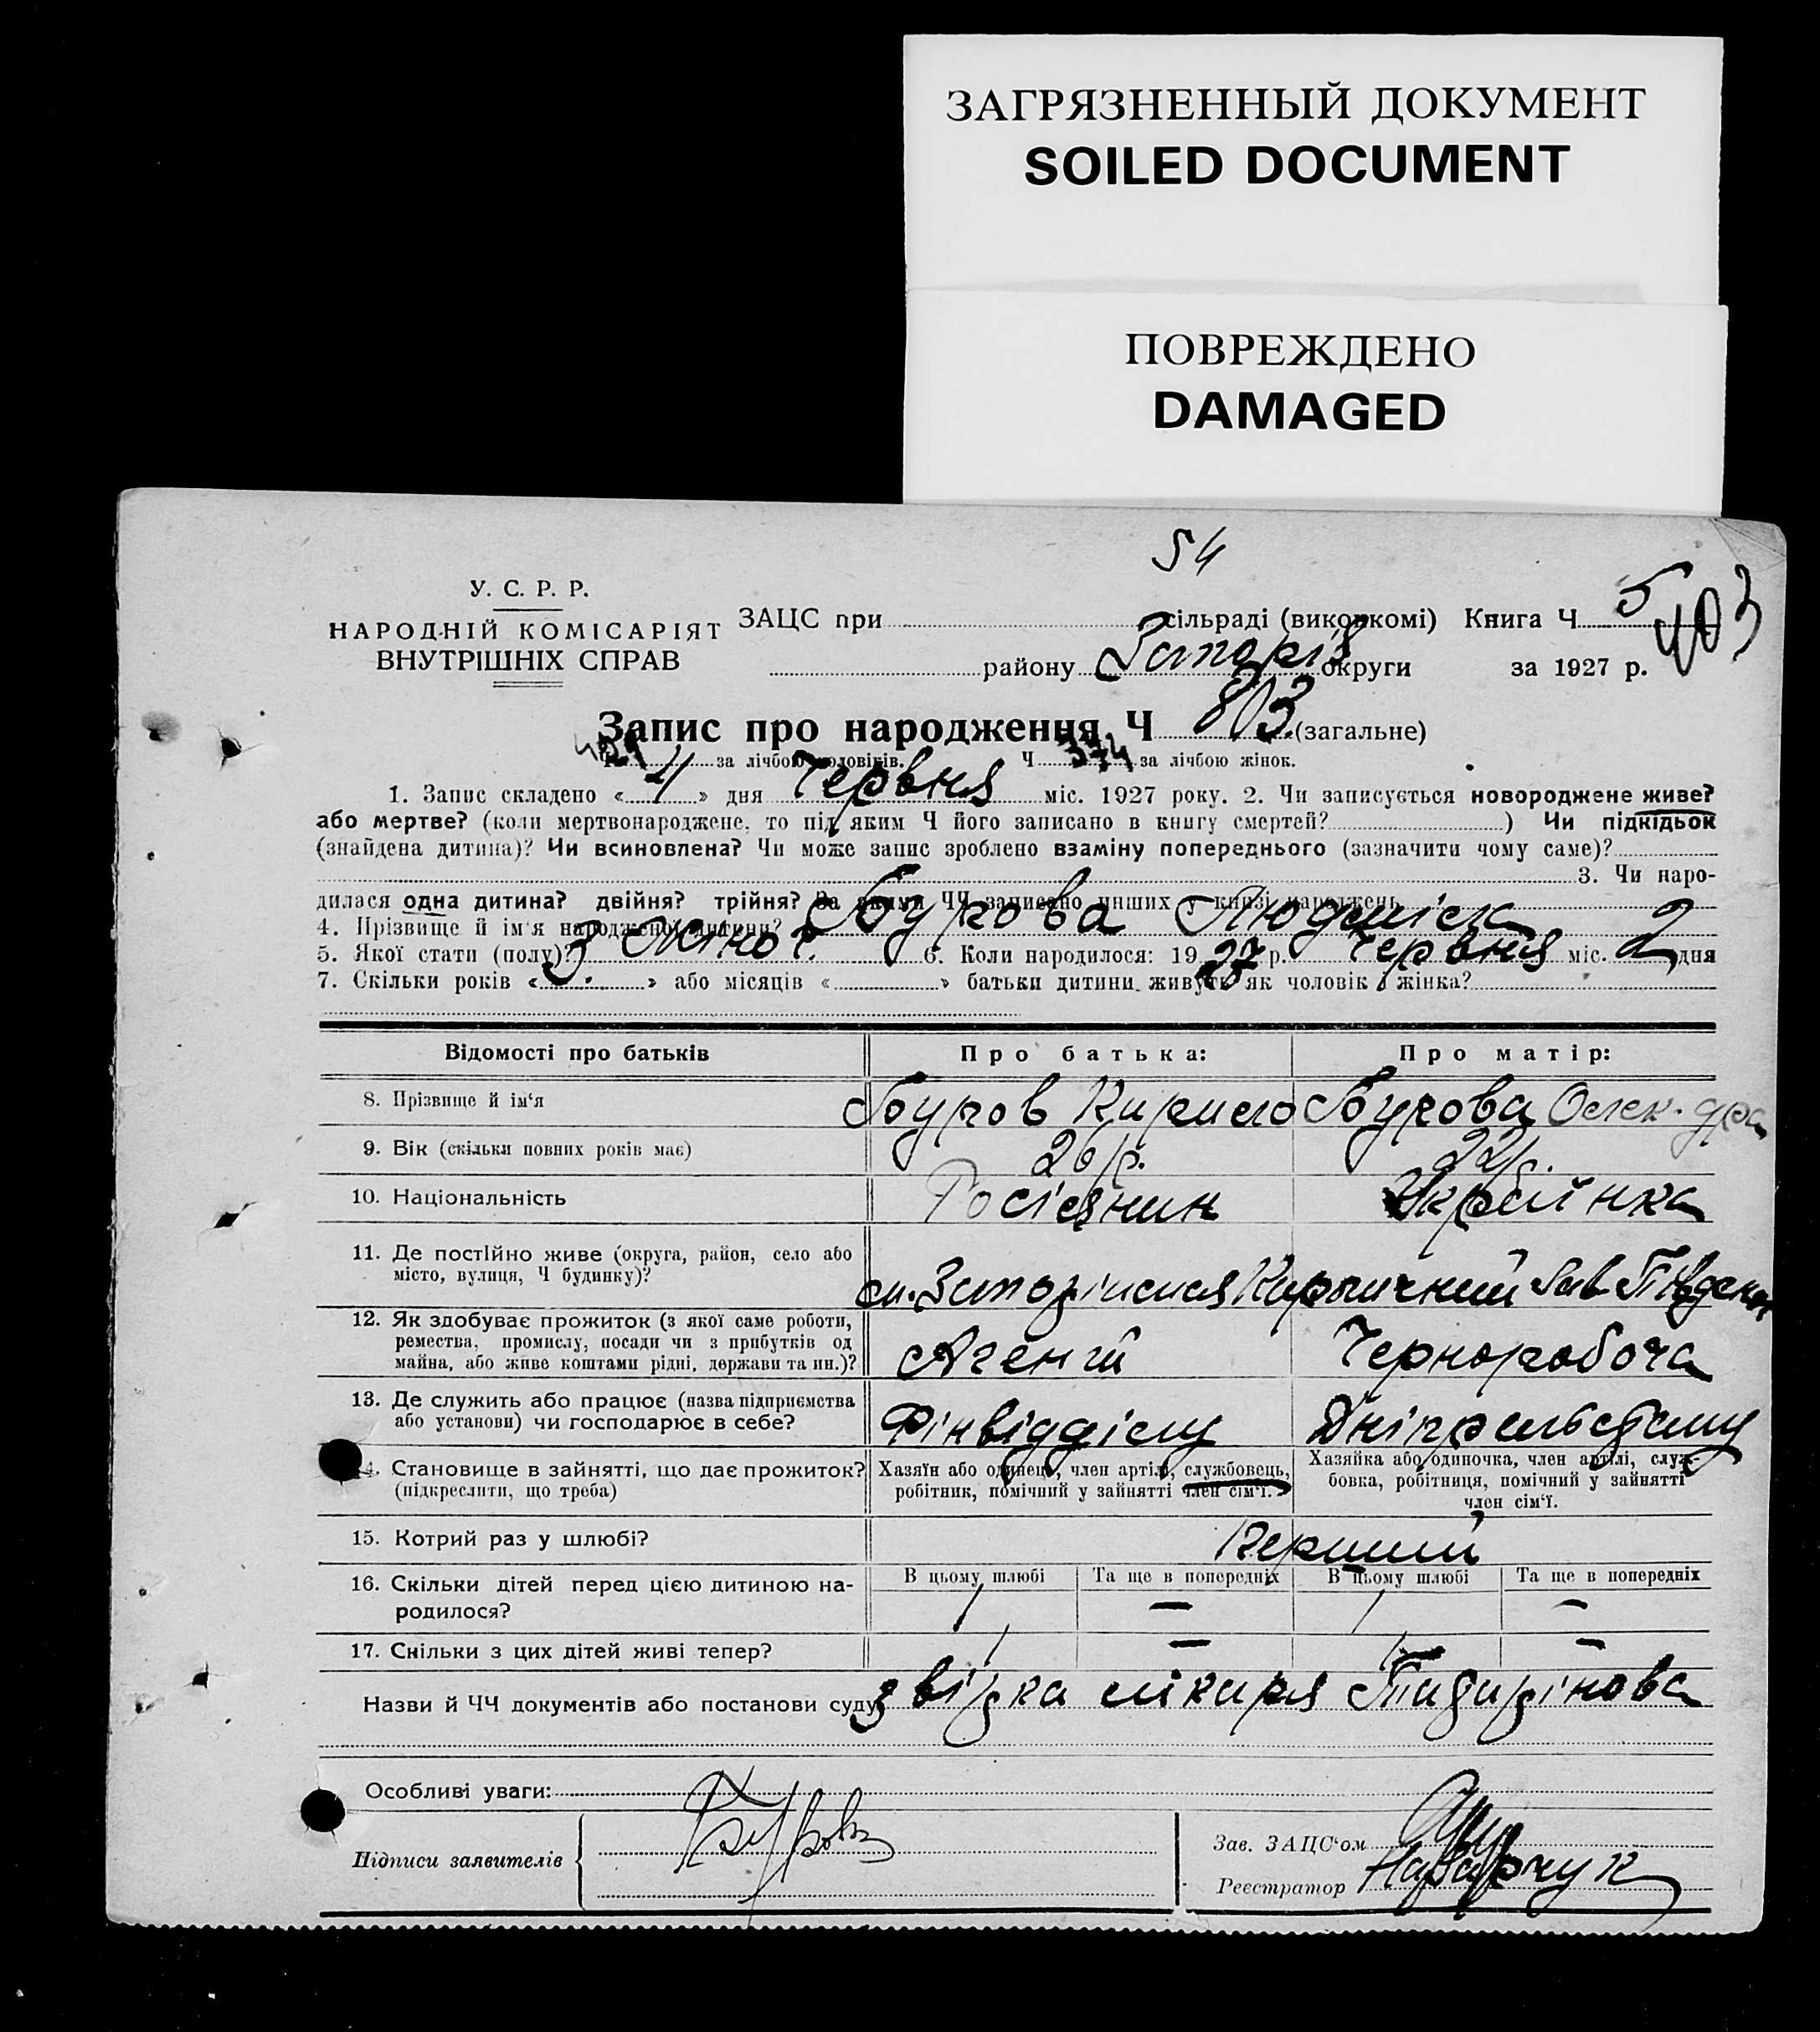 ЗАГРЯЗНЕННЫЙ ДОКУМЕНТ
SOILED DOCUMENT
ПОВРЕЖДЕНО
DAMAGED
54
У. С. Р. Р.
НАРОДНІЙ КОМІСАРІЯТ
ВНУТРІШНІХ СПРАВ
ЗАЦС при сільраді (виконкомі) Книга Ч 5
403
району Запоріз округи за 1927 р.
Запис про народження Ч 803 (загальне)
Ч 429 за лічбою чоловіків. Ч 374 за лічбою жінок.
1. Запис складено « 4 » дня Червня міс. 1927 року. 2. Чи записується новороджене живе?
або мертве? (коли мертвонароджене, то під яким Ч його записано в книгу смертей? ) Чи підкідьок
(знайдена дитина)? Чи всиновлена? Чи може запис зроблено взаміну попереднього (зазначити чому саме)?
3. Чи наро-
дилася одна дитина? двійня? трійня? За якими ЧЧ записано инших у книзі народжень
4. Прізвище й ім'я народженої дитини? Бурова Людміла
5. Якої стати (полу)? Жіноч. 6. Коли народилося: 1927 р. Червня міс. 2 дня
7. Скільки років « 3 » або місяців « » батьки дитини живуть як чоловік і жінка?
Відомості про батьків Про батька: Про матір:
8. Прізвище й ім'я Буров Кирило Бурова Олек-дра
9. Вік (скільки повних років має) 26 р. 22 р.
10. Національність Росіянин Українка
11. Де постійно живе (округа, район, село або
місто, вулиця, Ч будинку)? Кирпичний Зав
12. Як здобуває прожиток (з якої саме роботи,
ремества, промислу, посади чи з прибутків од
майна, або живе коштами рідні, держави та ин.)? Агент Чернороboча
13. Де служить або працює (назва підприємства
або установи) чи господарює в себе? Фінвідділу Дніпрельстану
14. Становище в зайнятті, що дає прожиток?
(підкреслити, що треба)
Хазяїн або одинець, член артілі, службовець,
робітник, помічний у зайнятті член сім'ї.
Хазяйка або одиночка, член артілі, служ-
бовка, робітниця, помічний у зайнятті
член сім'ї.
15. Котрий раз у шлюбі? Перший
16. Скільки дітей перед цією дитиною на-
родилося?
В цьому шлюбі Та ще в попередніх В цьому шлюбі Та ще в попередніх
1 — 1 —
17. Скільки з цих дітей живі тепер? 1 — 1 —
Назви й ЧЧ документів або постанови суду звірка лікаря
Особливі уваги:
Підписи заявителів Бурова
Зав. ЗАЦС'ом
Реєстратор Назарчук